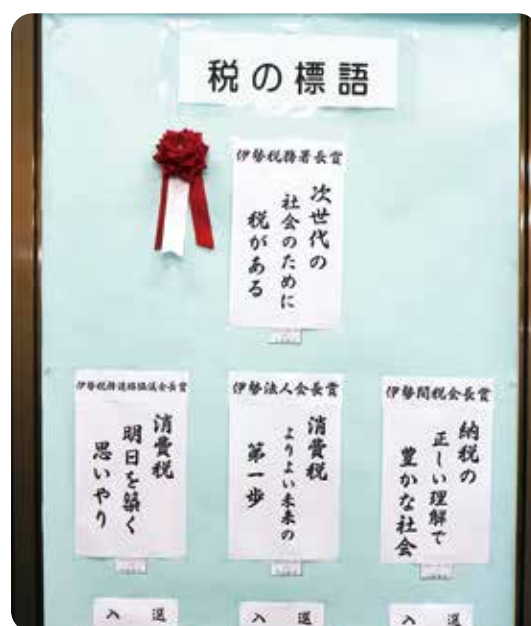 税の標語
伊勢税務署長賞
次世代の
社会のために
税がある
伊勢税務連絡協議会長賞
消費税
明日を築く
思いやり
伊勢法人会長賞
消費税
よりよい未来の
第一歩
伊勢間税会長賞
納税の
正しい理解で
豊かな社会
入選
入選
入選